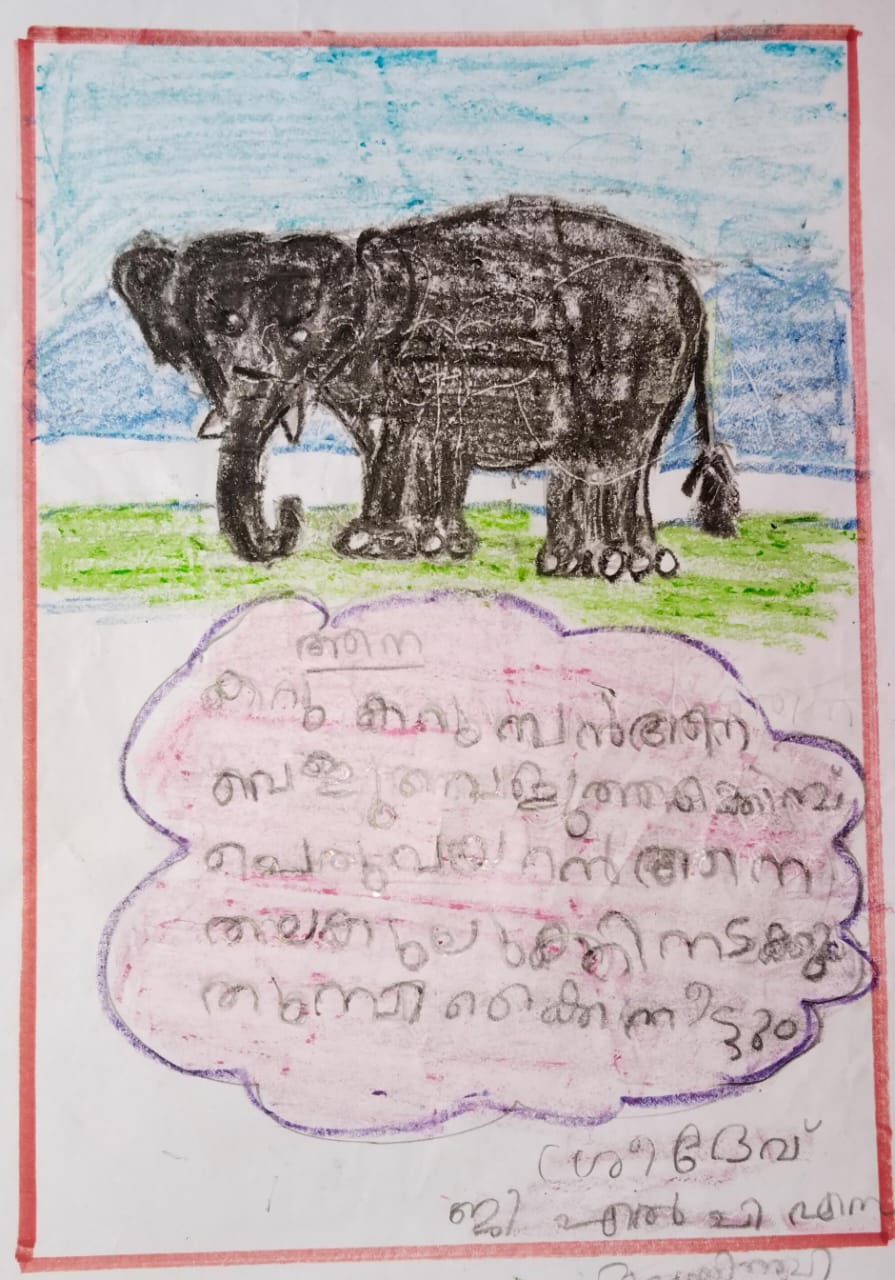 ആന
കറു കറു മ്പൻആന
വെളു വെളുത്തകൊമ്പ്
ചെറുവയറൻആന
തലകുലുക്കി നടക്കും
തുമ്പി കൈ നീട്ടും
ശ്രീദേവ്
ജി എൽ പി എസ